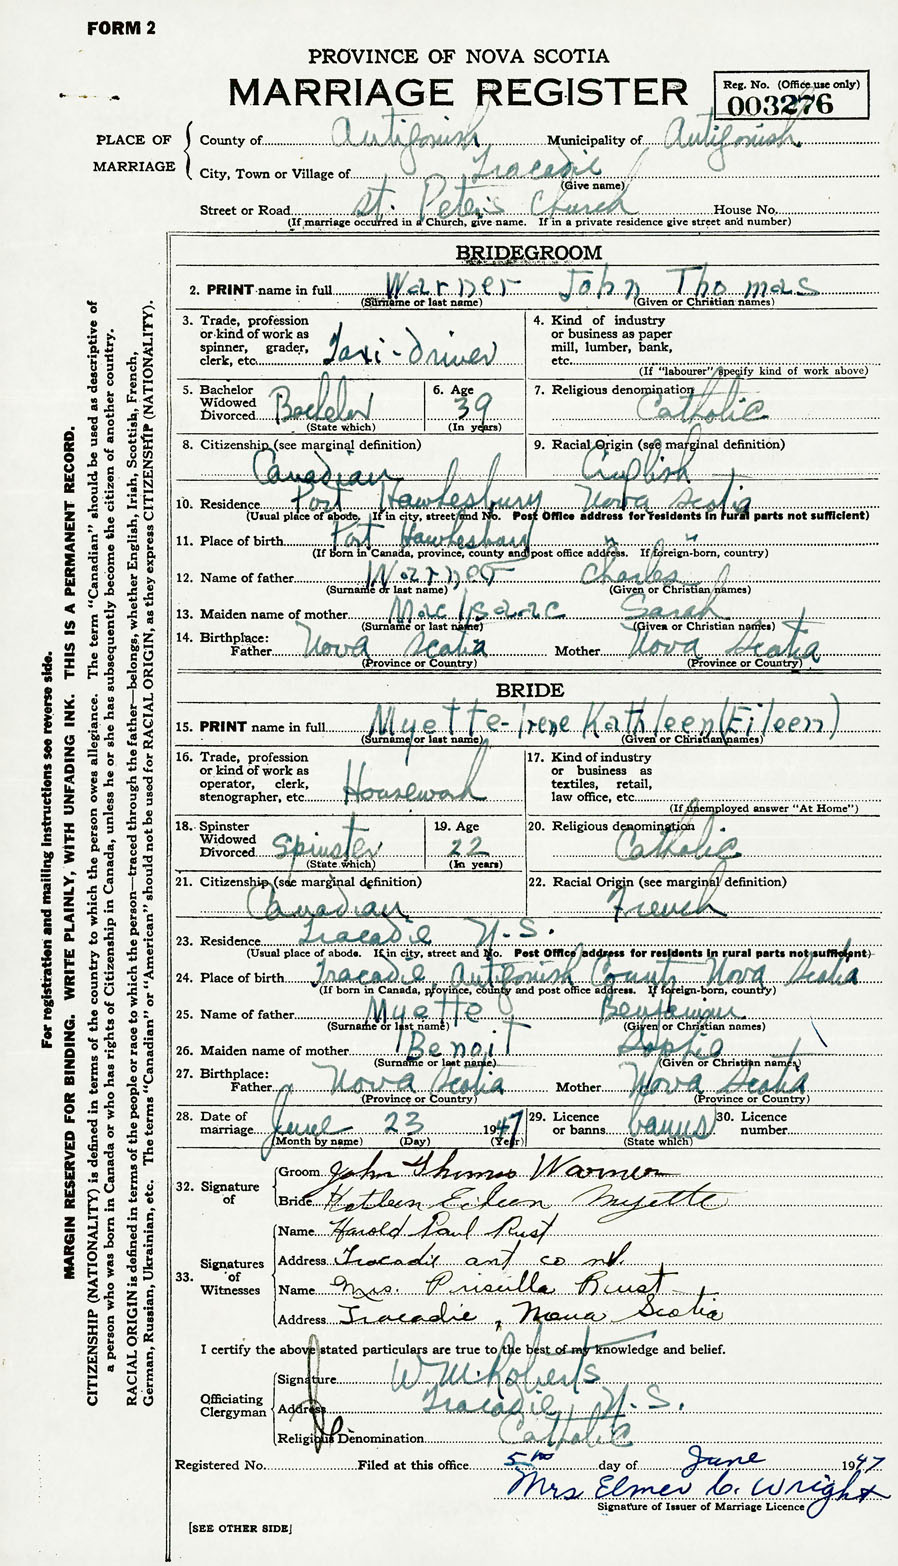 FORM 2
PROVINCE OF NOVA SCOTIA
MARRIAGE REGISTER
Reg. No. (Office use only)
003276
PLACE OF MARRIAGE
County of Antigonish Municipality of Antigonish
City, Town or Village of Tracadie
(Give name)
Street or Road St. Peter's Church House No.
(If marriage occurred in a Church, give name. If in a private residence give street and number)
BRIDEGROOM
2. PRINT name in full Warner John Thomas
(Surname or last name) (Given or Christian names)
3. Trade, profession or kind of work as spinner, grader, clerk, etc. Taxi-driver
4. Kind of industry or business as paper mill, lumber, bank, etc.
(If "labourer" specify kind of work above)
5. Bachelor Widowed Divorced Bachelor
(State which)
6. Age 39
(In years)
7. Religious denomination Catholic
8. Citizenship (see marginal definition) Canadian
9. Racial Origin (see marginal definition) English
10. Residence Port Hawkesbury Nova Scotia
(Usual place of abode. If in city, street and No. Post Office address for residents in rural parts not sufficient)
11. Place of birth Port Hawkesbury " "
(If born in Canada, province, county and post office address. If foreign-born, country)
12. Name of father Warner Charles
(Surname or last name) (Given or Christian names)
13. Maiden name of mother MacIsaac Sarah
(Surname or last name) (Given or Christian names)
14. Birthplace: Father Nova Scotia Mother Nova Scotia
(Province or Country) (Province or Country)
BRIDE
15. PRINT name in full Myette - Irene Kathleen (Eileen)
(Surname or last name) (Given or Christian names)
16. Trade, profession or kind of work as operator, clerk, stenographer, etc. Housework
17. Kind of industry or business as textiles, retail, law office, etc.
(If unemployed answer "At Home")
18. Spinster Widowed Divorced Spinster
(State which)
19. Age 22
(In years)
20. Religious denomination Catholic
21. Citizenship (see marginal definition) Canadian
22. Racial Origin (see marginal definition) French
23. Residence Tracadie N.S.
(Usual place of abode. If in city, street and No. Post Office address for residents in rural parts not sufficient)
24. Place of birth Tracadie, Antigonish County Nova Scotia
(If born in Canada, province, county and post office address. If foreign-born, country)
25. Name of father Myette Benjamin
(Surname or last name) (Given or Christian names)
26. Maiden name of mother Benoit Sophie
(Surname or last name) (Given or Christian names)
27. Birthplace: Father Nova Scotia Mother Nova Scotia
(Province or Country) (Province or Country)
28. Date of marriage June 23 1947
(Month by name) (Day) (Year)
29. Licence or banns banns
(State which)
30. Licence number
32. Signature of
Groom John Thomas Warner
Bride Kathleen Eileen Myette
33. Signatures of Witnesses
Name Harold Paul Rust
Address Tracadie ant co n.s.
Name Mrs. Priscilla Rust
Address Tracadie, Nova Scotia
I certify the above stated particulars are true to the best of my knowledge and belief.
Officiating Clergyman
Signature W.M. Roberts
Address Tracadie N.S.
Religious Denomination Catholic
Registered No. Filed at this office 5th day of June 1947
Mrs Elmer C. Wright
Signature of Issuer of Marriage Licence
[SEE OTHER SIDE]
For registration and mailing instructions see reverse side.
MARGIN RESERVED FOR BINDING. WRITE PLAINLY, WITH UNFADING INK. THIS IS A PERMANENT RECORD.
CITIZENSHIP (NATIONALITY) is defined in terms of the country to which the person owes allegiance. The term "Canadian" should be used as descriptive of
a person who was born in Canada or who has rights of Citizenship in Canada, unless he or she has subsequently become the citizen of another country.
RACIAL ORIGIN is defined in terms of the people or race to which the person—traced through the father—belongs, whether English, Irish, Scottish, French,
German, Russian, Ukrainian, etc. The terms "Canadian" or "American" should not be used for RACIAL ORIGIN, as they express CITIZENSHIP (NATIONALITY).